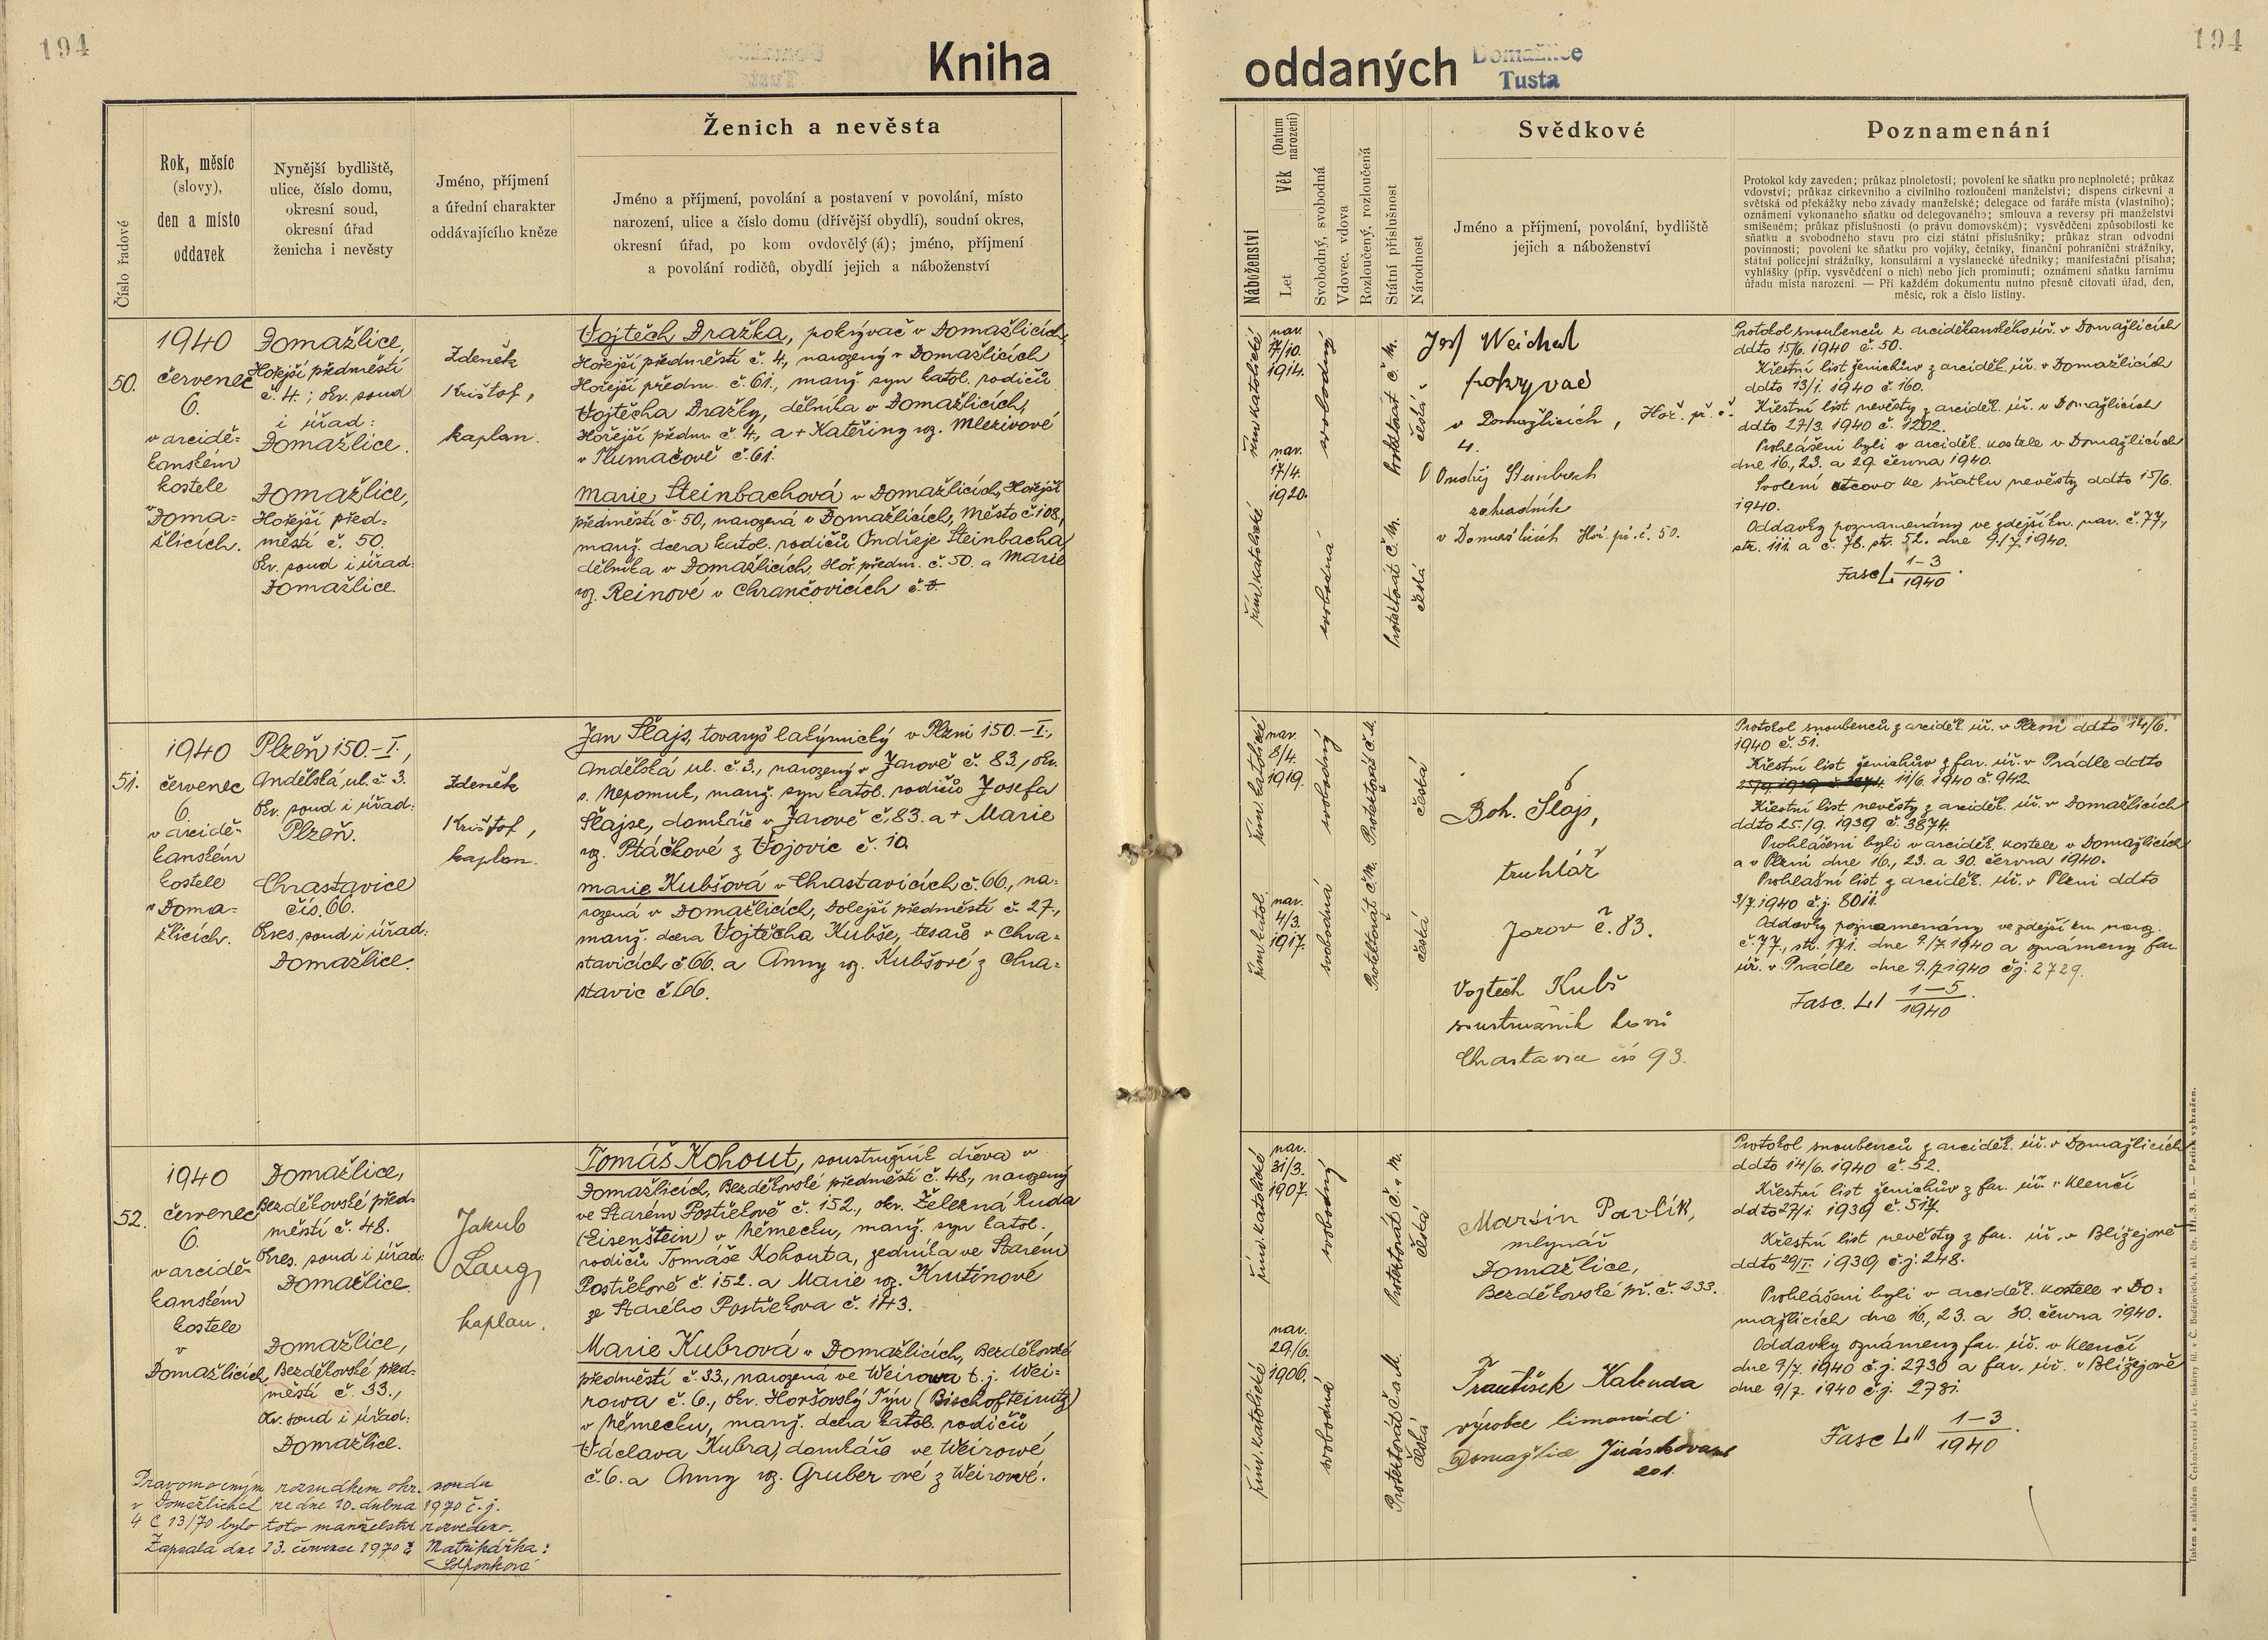 194
Kniha
Ženich a nevěsta
Číslo řadové
Rok, měsíc
(slovy),
den a místo
oddavek
Nynější bydliště,
ulice, číslo domu,
okresní soud,
okresní úřad
ženicha i nevěsty
Jméno, příjmení
a úřední charakter
oddávajícího kněze
Jméno a příjmení, povolání a postavení v povolání, místo
narození, ulice a číslo domu (dřívější obydlí), soudní okres,
okresní úřad, po kom ovdovělý (á); jméno, příjmení
a povolání rodičů, obydlí jejich a náboženství
50.
1940
červenec
6.
v arcidě-
kanském
kostele
v Doma-
žlicích.
Domažlice,
Hořejší předměstí
č. 4.; okr. soud
i úřad:
Domažlice.
Domažlice,
Hořejší před-
městí č. 50.
Okr. soud i úřad:
Domažlice.
Zdeněk
Krištof,
kaplan.
Vojtěch Dražka, pokrývač v Domažlicích,
Hořejší předměstí č. 4., narozený v Domažlicích
Hořejší předm. č. 61., manž. syn katol. rodičů
Vojtěcha Dražky, dělníka v Domažlicích,
Hořejší předm. č. 4., a + Kateřiny roz. Mlezivové
v Tlumačově č. 61.
Marie Steinbachová v Domažlicích, Hořejší
předměstí č. 50, narozená v Domažlicích, Město č. 108,
manž. dcera katol. rodičů Ondřeje Steinbacha,
dělníka v Domažlicích, Hoř. předm. č. 50. a Marie
roz. Reinové v Chrančovicích č.
51.
1940
červenec
6.
v arcidě-
kanském
kostele
v Doma-
žlicích.
Plzeň 150.-I.,
Andělská ul. č. 3.
Okr. soud i úřad:
Plzeň.
Chrastavice
čís. 66.
Okres. soud i úřad:
Domažlice.
Zdeněk
Krištof,
kaplan.
Jan Šlajs, tovaryš kalýmický v Plzni 150.-I.,
Andělská ul. č. 3., narozený v Žarově č. 83., okr.
s. Nepomuk, manž. syn katol. rodičů Josefa
Šlajse, domkáře v Žarově č. 83. a + Marie
roz. Ptáčkové z Vojovic č. 10.
Marie Kubšová v Chrastavicích č. 66., na-
rozená v Domažlicích, Dolejší předměstí č. 27.,
manž. dcera Vojtěcha Kubše, tesaře v Chra-
stavicích č. 66. a Anny roz. Kubšové z Chra-
stavic č. 66.
52.
1940
červenec
6.
v arcidě-
kanském
kostele
v
Domažlicích.
Domažlice,
Bezděkovské před-
městí č. 48.
Okres. soud i úřad:
Domažlice.
Domažlice,
Bezděkovské před-
městí č. 33.,
Okr. soud i úřad:
Domažlice.
Jakub
Laug,
kaplan.
Tomáš Kohout, soustružník dřeva v
Domažlicích, Bezděkovské předměstí č. 48., narozený
ve Starém Postřekově č. 152., okr. Železná Ruda
(Eisenstein) v Německu, manž. syn katol.
rodičů Tomáše Kohouta, zedníka ve Starém
Postřekově č. 152. a Marie roz. Krutinové
ze Starého Postřekova č. 143.
Marie Kubrová v Domažlicích, Bezděkovské
předměstí č. 33., narozená ve Weirowa t. j. Wei-
rowa č. 6., okr. Horšovský Týn (Bischofteinitz)
v Německu, manž. dcera katol. rodičů
Václava Kubra, domkáře ve Weirowé
č. 6. a Anny roz. Gruber-ové z Weirowé.
Pravomocným rozsudkem okr. soudu
v Domažlicích ze dne 20. dubna 1970 č. j.
4 C 13/70 bylo toto manželství rozvedeno.
Zapsala dne 13. července 1970 Matrikářka:
194
oddaných
Domažlice
Tusta
Svědkové
Poznamenání
Náboženství
Věk (Datum narození)
Let
Svobodný, svobodná
Vdovec, vdova
Rozloučený, rozloučená
Státní příslušnost
Národnost
Jméno a příjmení, povolání, bydliště
jejich a náboženství
Protokol kdy zaveden; průkaz plnoletosti; povolení ke sňatku pro neplnoleté; průkaz
vdovství; průkaz církevního a civilního rozloučení manželství; dispens církevní a
světská od překážky nebo závady manželské; delegace od faráře místa (vlastního);
oznámení vykonaného sňatku od delegovaného; smlouva a reversy při manželství
smíšeném; průkaz příslušnosti (o právu domovském); vysvědčení způsobilosti ke
sňatku a svobodného stavu pro cizí státní příslušníky; průkaz stran odvodní
povinnosti; povolení ke sňatku pro vojáky, četníky, finanční pohraniční strážníky,
státní policejní strážníky, konsulární a vyslanecké úředníky; manifestační přísaha;
vyhlášky (příp. vysvědčení o nich) nebo jich prominutí; oznámení sňatku farnímu
úřadu místa narození. — Při každém dokumentu nutno přesně citovati úřad, den,
měsíc, rok a číslo listiny.
řím. katolické
nar.
7/10.
1914.
svobodný
Protektorát Č. M.
česká
řím. katolické
nar.
17/4.
1920.
svobodná
Protektorát Č. M.
česká
Josf Weichet
pokryvač
v Domažlicích, Hoř. př. č.
4.
Ondřej Steinbach
zahradník
v Domažlicích Hoř. př. č. 50.
Protokol snoubenců z arciděkanského úř. v Domažlicích
ddto 15/6. 1940 č. 50.
Křestní list ženichův z arciděk. úř. v Domažlicích
ddto 13/1. 1940 č. 160.
Křestní list nevěsty z arciděk. úř. v Domažlicích
ddto 27/3. 1940 č. 1202.
Prohlášeni byli v arciděk. kostele v Domažlicích
dne 16., 23. a 29. června 1940.
Svolení otcovo ke sňatku nevěsty ddto 15/6.
1940.
Oddavky poznamenány ve zdejší kn. nar. č. 77,
str. 111. a č. 78. str. 52. dne 9./7. 1940.
Fasc L 1-3/1940.
řím. katolické
nar.
8/4.
1919.
svobodný
Protektorát Č. M.
česká
řím. katol.
nar.
4/3.
1917.
svobodná
Protektorát Č. M.
česká
Boh. Šlajs,
truhlář
Žarov č. 83.
Vojtěch Kubš
soustružník kovů
Chrastavice čís 93.
Protokol snoubenců z arciděk. úř. v Plzni ddto 14/6.
1940 č. 51.
Křestní list ženichův z far. úř. v Prádle ddto
11/6. 1940 č. 942.
Křestní list nevěsty z arciděk. úř. v Domažlicích
ddto 25./9. 1939 č. 3874.
Prohlášeni byli v arciděk. kostele v Domažlicích
a v Plzni dne 16., 23. a 30. června 1940.
Prohlašní list z arciděk. úř. v Plzni ddto
3/7. 1940 č. j. 8011.
Oddavky poznamenány ve zdejší kn. naroz.
č. 77., str. 171. dne 9./7. 1940 a oznámeny far.
úř. v Prádle dne 9./7. 1940 č. j. 2729.
Fasc. LI 1-5/1940.
řím. katolické
nar.
31/3.
1907.
svobodný
Protektorát Č. a M.
česká
řím. katolické
nar.
29/6.
1906.
svobodná
Protektorát Č. a M.
česká
Martin Pavlík,
mlynář
Domažlice,
Bezděkovské př. č. 233.
František Kalenda
výrobce limonád
Domažlice Jiráskova
201.
Protokol snoubenců z arciděk. úř. v Domažlicích
ddto 14/6. 1940 č. 52.
Křestní list ženichův z far. úř. v Klenčí
ddto 27/1. 1939 č. 517.
Křestní list nevěsty z far. úř. v Blížejově
ddto 29/I. 1939 č. j. 248.
Prohlášeni byli v arciděk. kostele v Do-
mažlicích dne 16., 23. a 30. června 1940.
Oddavky oznámeny far. úř. v Klenčí
dne 9/7. 1940 č. j. 2730 a far. úř. v Blížejově
dne 9/7. 1940 č. j. 2731.
Fasc LII 1-3/1940.
Tiskem a nákladem Českoslovanské akc. tiskárny fil. v Č. Budějovicích, skl. čís. III. 3. B. — Patisk vyhražen.